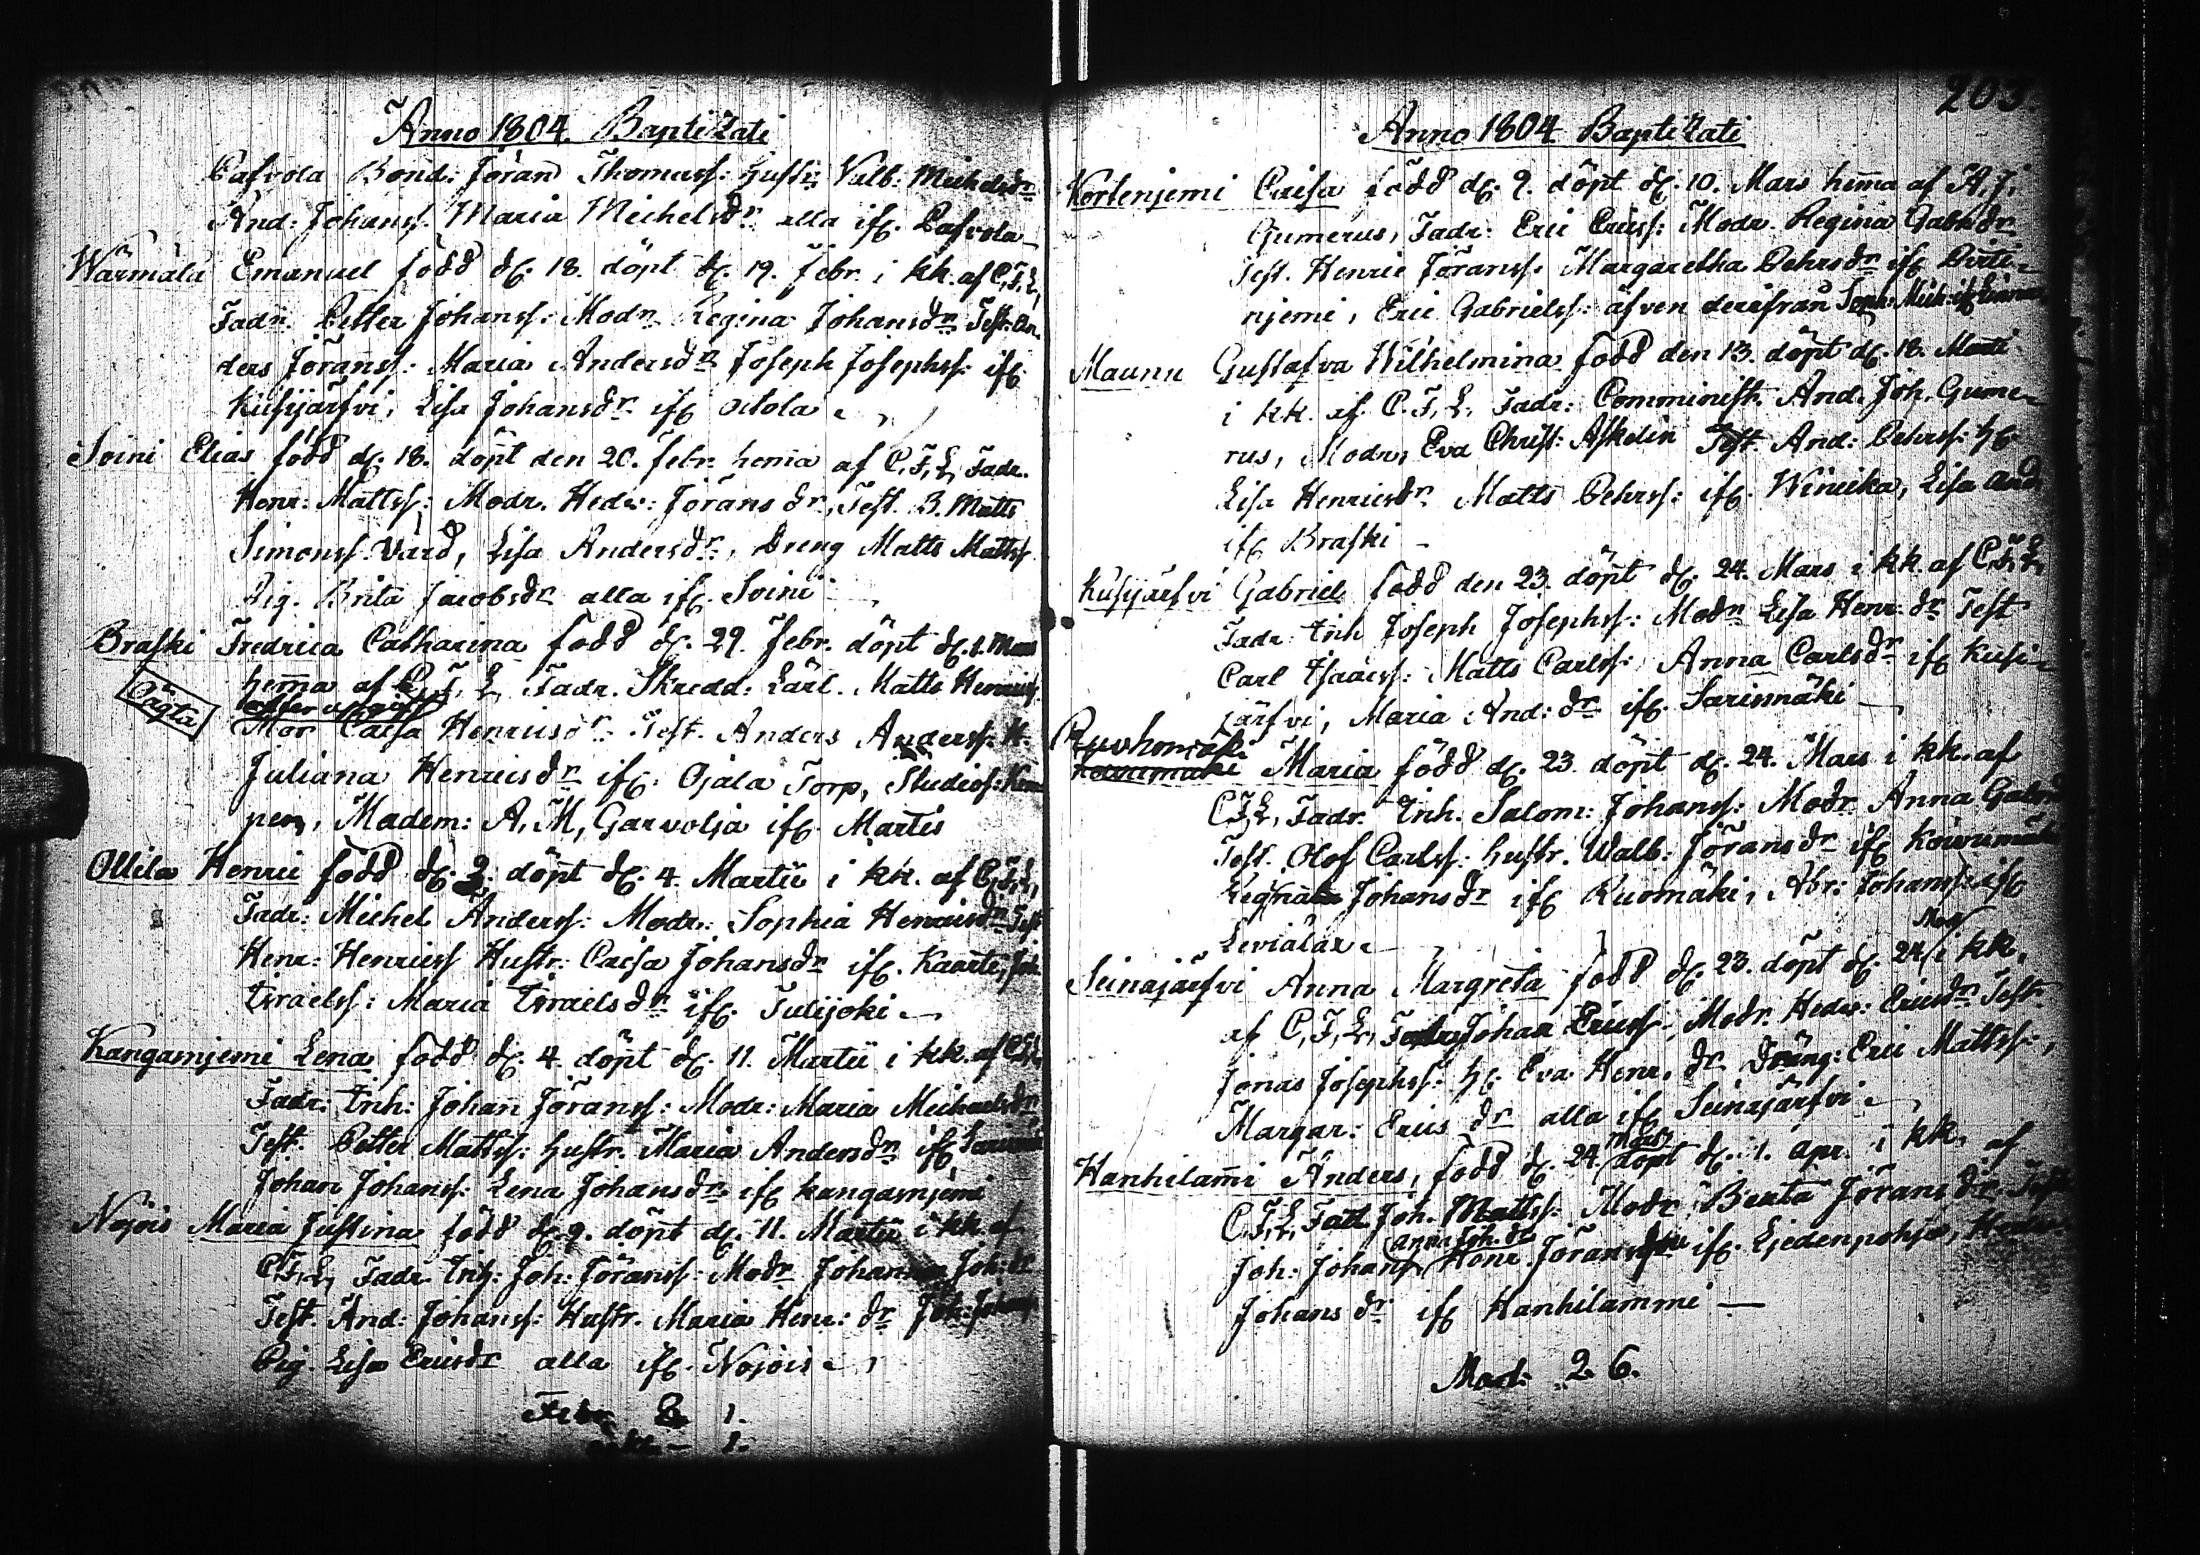 Anno 1804. Baptizati
Pafvola Bond: Jöran Thomass: hustr: Valb: Michelsdr
And: Johanss. Maria Michelsdr alla ifr. Pafvola
Warmala Emanuel född d. 18. döpt d. 19. Febr. i kk. af C.F.L.
Fadr. Petter Johanss: Modr Regina Johansdr Test: An
ders Jöranss: Maria Andersdr Joseph Josephss: ifr.
Kusijärfvi, Lisa Johansdr ifr
Soini Elias född d. 18. döpt den 20. Febr. hema af C.F.L. Fadr.
Henr: Mattss: Modr. Hedv: Jöransdr, Test. B. Matts
Simonss. Vard, Lisa Andersdr, Dreng Matts Mattss.
Pig. Brita Jacobsdr alla ifr. Soini
Braski Fredrica Catharina född d. 29. Febr. döpt d. 1. Mars
hema af C.F.L Fadr. Skredd: Lärl. Matts Henricss.
Oägta
Mor Caisa Henricsdr Test. Anders Anderss: H.
Juliana Henricsdr ifr. Ojala Torp, Studios:
pen, Madem: A. M, Garvolia ifr. Martis
Ollila Henric född d. 3. döpt d. 4. Martii i kk. af C.F.L.
Fadr: Michel Anderss: Modr: Sophia Henricsdr Test
Henr: Henricss Hustr: Caisa Johansdr ifr. Kaarto, Joh.
Israelss: Maria Israelsdr ifr. Tulijoki
Kangasnjemi Lena född d. 4. döpt d. 11. Martii i kk. af C.F.L.
Fadr: Inh: Johan Jöranss: Modr: Maria Michaelsdr
Test. Petter Mattss: hustr. Maria Andersdr ifr
Johan Johanss: Lena Johansdr ifr Kangasnjemi
Nojois Maria Justina född d. 9. döpt d. 11. Martii i kk. af
C.F.L. Fadr Inh: Joh: Jöranss: Modr Johanna Joh: dr
Test. And: Johanss: Hustr. Maria Henr: dr Joh: Johanss.
Pig. Lisa Ericsdr alla ifr. Nojois
1.
1.
203.
Anno 1804 Baptizati
Kortenjemi Caisa född d. 9. döpt d. 10. Mars hema af A. J.
Gumerus, Fadr: Eric Ericss: Modr. Regina Gabrdr
Test. Henric Jöranss. Margaretha Pehrsdr ifr
njemi, Eric Gabrielss: äfven derifrån
Maunu Gustafva Wilhelmina född den 13. döpt d. 18. Marti
i kk. af C. F. L. Fadr: Comminist. And. Joh. Gume
rus, Modr. Eva Christ: Askelin Test. And: Pehrss: h:
Lisa Henricsdr Matts Pehrss: ifr. Winicka, Lisa And
ifr Braski
Kusijärfvi Gabriel född den 23. döpt d. 24. Mars i kk. af C.F.L.
Fadr Inh Joseph Josephss: Modr Lisa Henr: dr Test
Carl Isaacss: Matts Carlss: Anna Carlsdr ifr Kusi
järfvi, Maria And: dr ifr. Sarinmäki
Maria född d. 23. döpt d. 24. Mars i kk. af
C.F.L. Fadr. Inh. Salom: Johanss: Modr. Anna Gabr
Test. Olof Carlss: hustr. Walb: Jöransdr ifr
Johansdr ifr Ruomäki, Abr: Johanss: ifr
Leviälax
Seinäjärfvi Anna Margreta född d. 23. döpt d. 24 i kk.
af C.F.L. Fadr Johan Ericss: Modr. Hedv: Ericsdr Test.
Jonas Josephss: h: Eva Henr. dr Dräng: Eric Mattss:,
Margar: Erics dr alla ifr Seinäjärfvi
Hanhilammi Anders, född d. 24. Mars döpt d. 1. Apr. i kk. af
C.F.L. Fadr Joh. Mattss. Modr Beata Jöransdr Test
Anna Joh. dr
Joh: Johanss Henr. ifr. Liedenpohja,
Johans dr ifr Hanhilammi
2. 6.